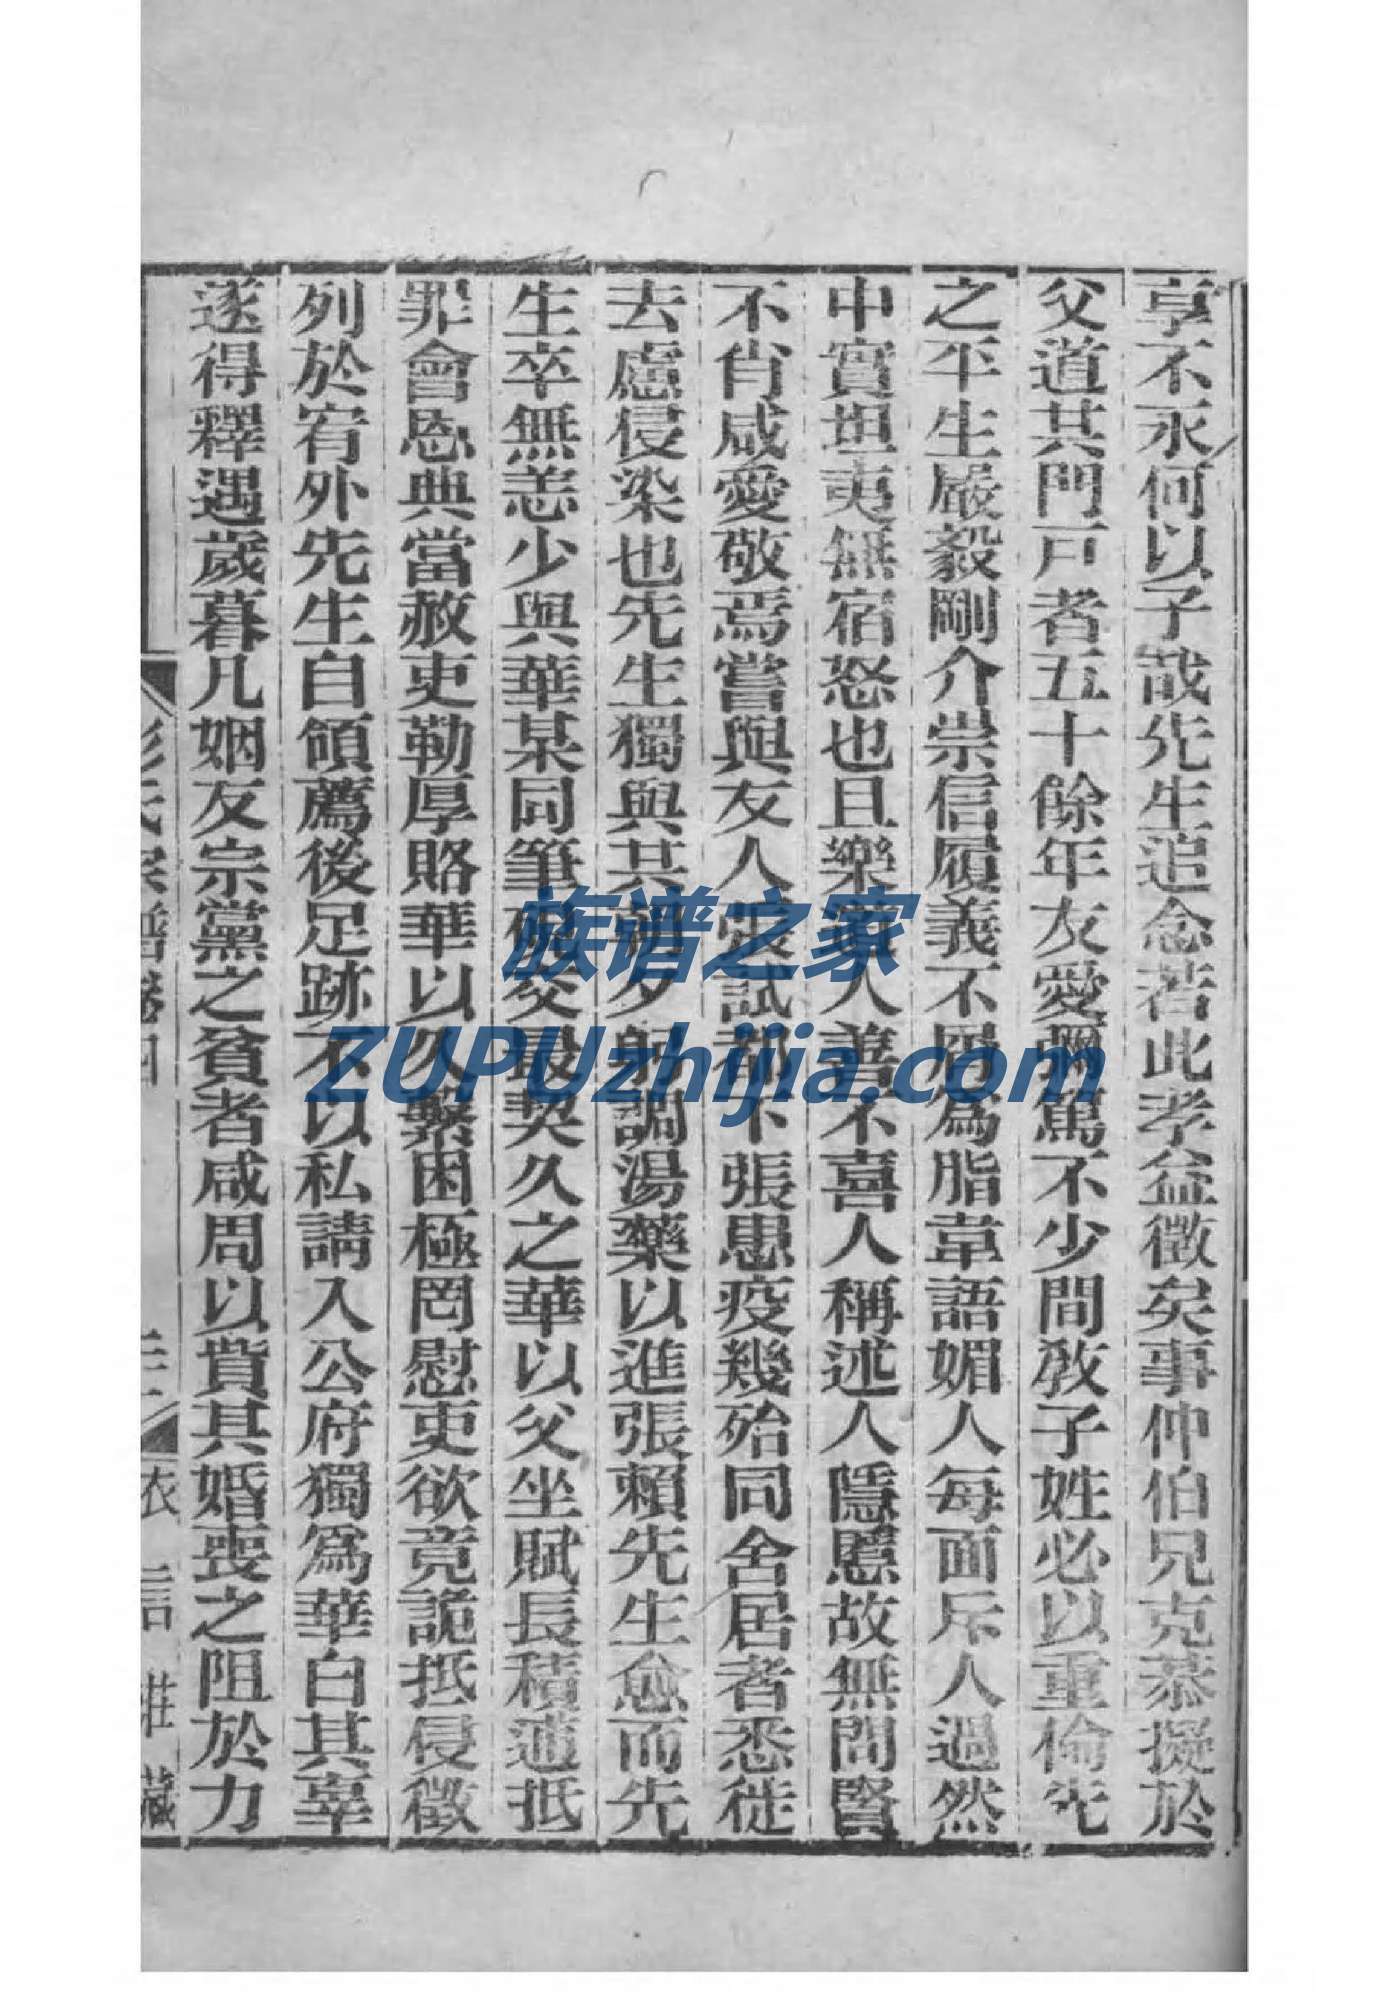 享不永何以子哉先生追念若此孝益徵矣事仲伯兄克恭擬於
父道其門戸者五十餘年友愛彌篤不少間教子姓必以重倫先
之平生嚴毅剛介崇信履義不屑為脂韋語媚人每面斥人過然
中實坦夷無宿怒也且樂薦人善不喜人稱述人隱慝故無問賢
不肖咸愛敬焉嘗與友人張試都下張患疫幾殆同舍居者悉徙
去慮侵染也先生獨與其朝夕躬調湯藥以進張賴先生愈而先
生卒無恙少與華某同筆硯交最契久之華以父坐賦長積逋抵
罪會恩典當赦吏勒厚賂華以久繫困極罔慰吏欲竟詭抵侵徵
列於宥外先生自領薦後足跡不以私請入公府獨為華白其辜
遂得釋遇歲暮凡姻友宗黨之貧者咸周以貲其婚喪之阻於力
彭氏宗譜卷四
衣言莊藏
族谱之家
ZUPUzhijia.com